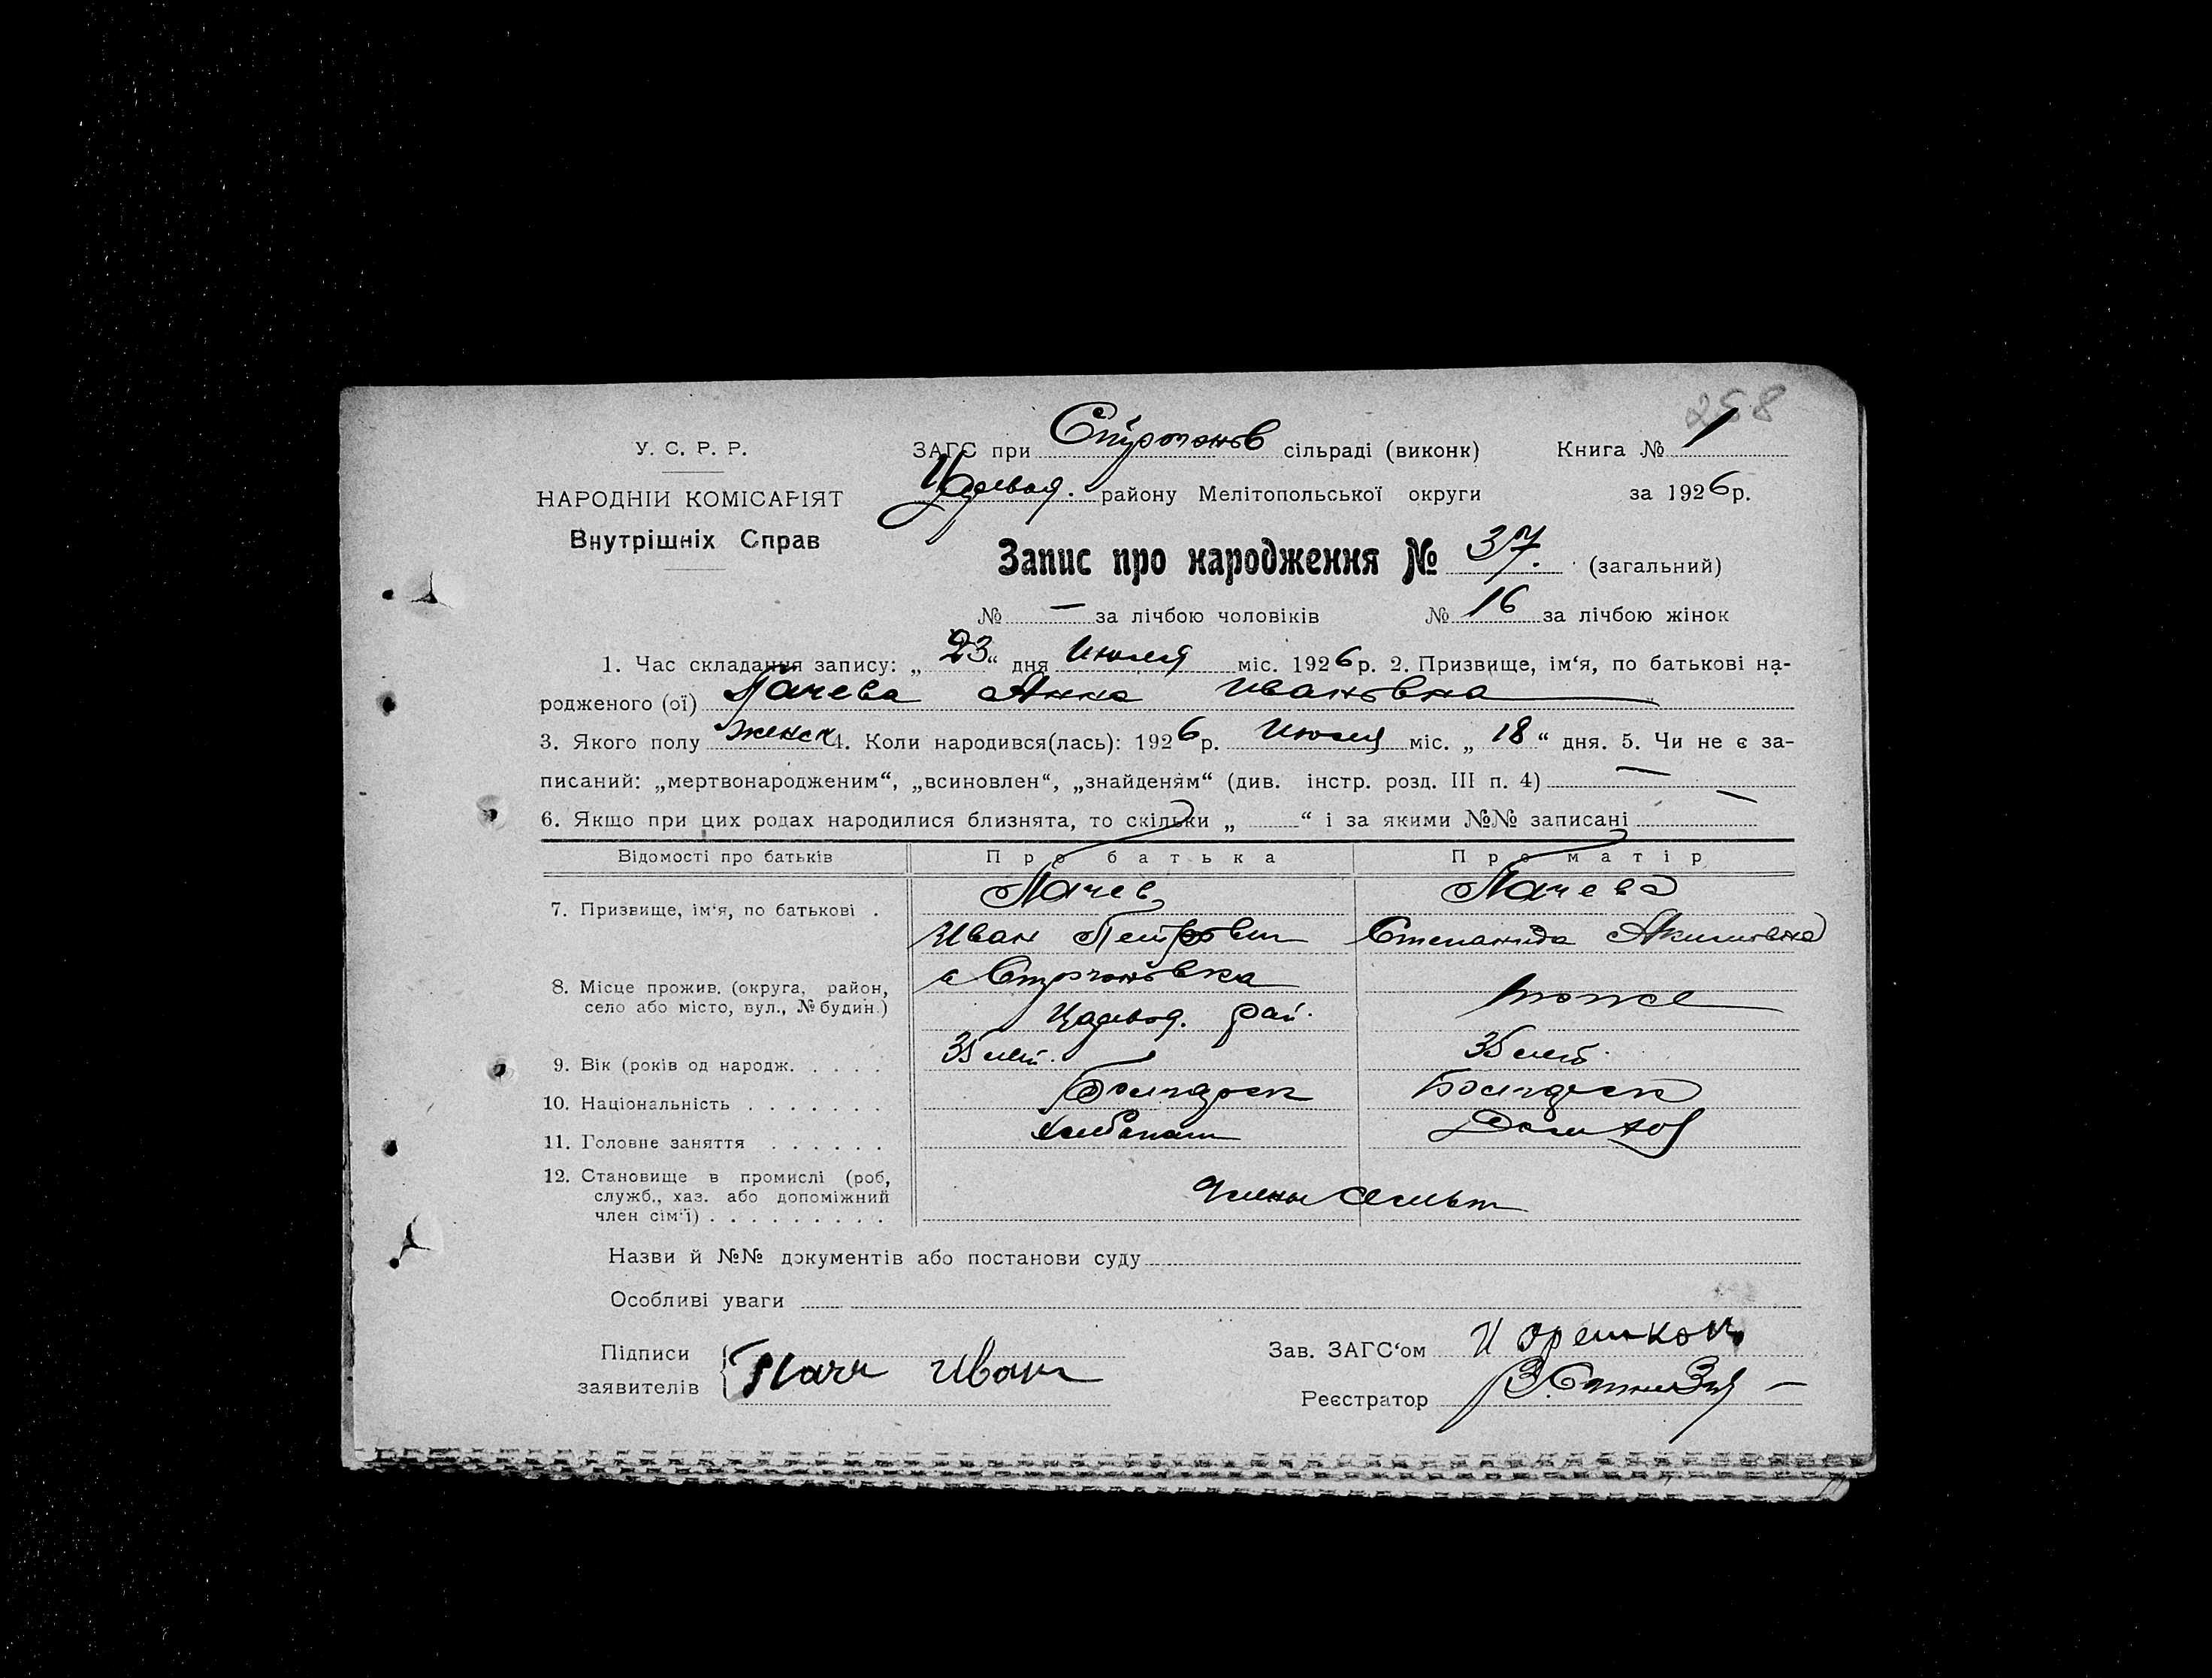 258
У. С. Р. Р.
ЗАГС при Строганов сільраді (виконк) Книга № 1
НАРОДНІЙ КОМІСАРІЯТ
Царевод. району Мелітопольської округи за 1926 р.
Внутрішніх Справ
Запис про народження № 37. (загальний)
№ — за лічбою чоловіків № 16 за лічбою жінок
1. Час складання запису: „ 23 “ дня Июля міс. 1926 р. 2. Призвище, ім‘я, по батькові на-
родженого (ої) Пачева Анна Ивановна
3. Якого полу женск 4. Коли народився(лась): 1926 р. Июля міс. „ 18 “ дня. 5. Чи не є за-
писаний: „мертвонародженим“, „всиновлен“, „знайденям“ (див. інстр. розд. III п. 4) —
6. Якщо при цих родах народилися близнята, то скільки „ “ і за якими №№ записані —
Відомості про батьків Про батька Про матір
7. Призвище, ім‘я, по батькові . Пачев Пачева
Иван Петрович Степанида Акимовна
8. Місце прожив. (округа, район, с Строгановка
село або місто, вул., № будин.) Царевод. рай. тоже
9. Вік (років од народж. . . . . 35 лет. 35 лет.
10. Національність . . . . . . . Болгарск Болгарск
11. Головне заняття . . . . . . Хлебопаш Домхоз
12. Становище в промислі (роб,
служб., хаз. або допоміжний Члены
член сім‘ї) . . . . . . . . .
Назви й №№ документів або постанови суду
Особливі уваги
Підписи Зав. ЗАГС‘ом
заявителів Пачи Иван
Реєстратор